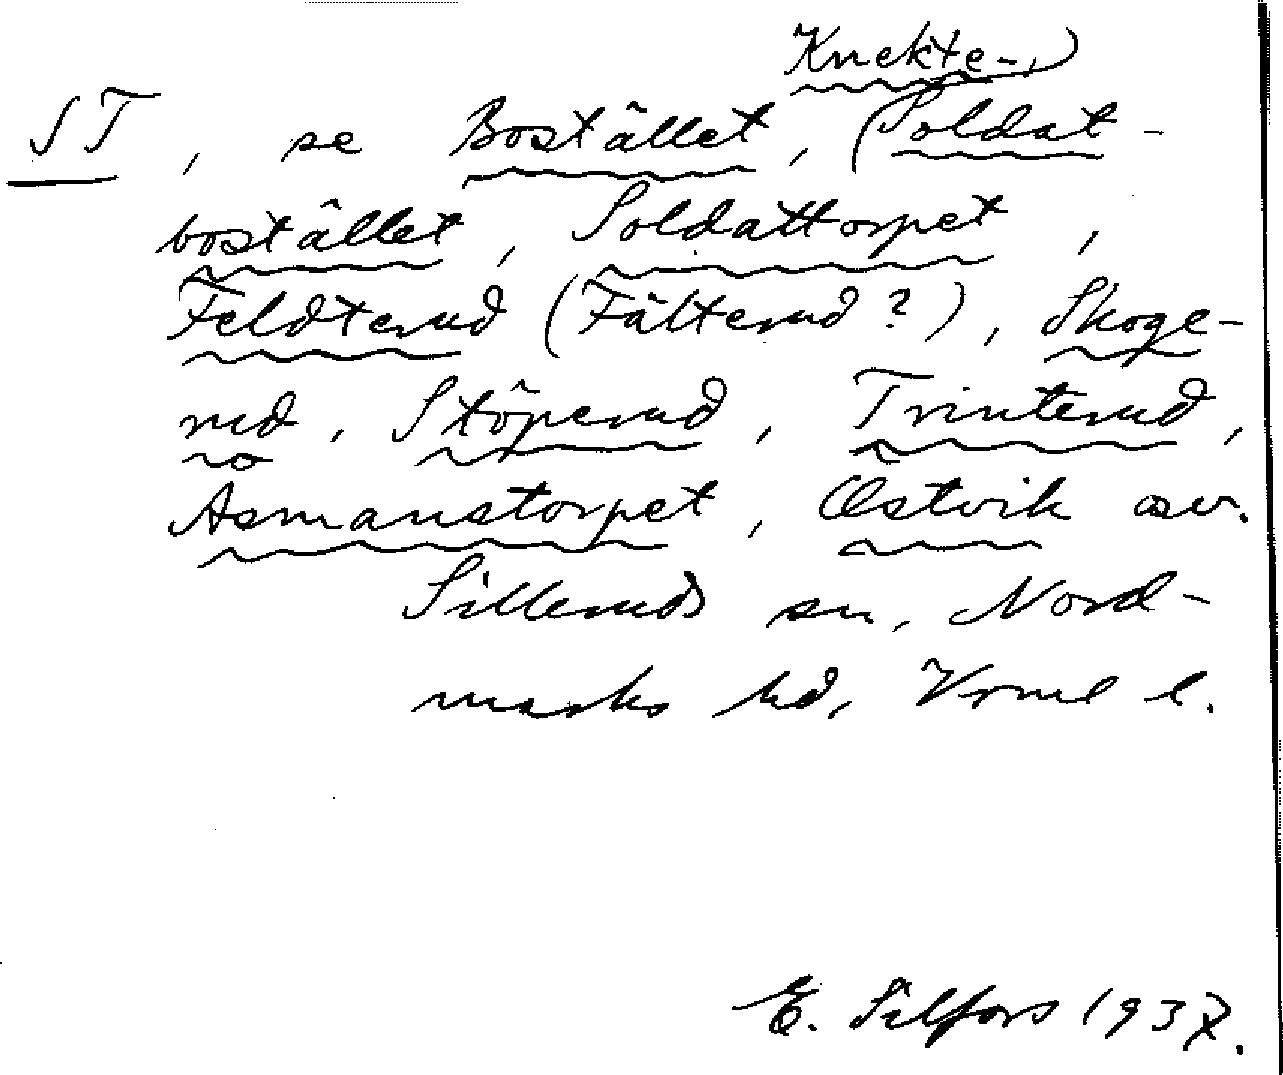 Knekte-,)
ST, se Bostället, (Soldat-
bostället, Soldattorpet,
Feldterud (Fälterud?), Skoge-
rud, Stöperud, Trinterud,
Åsmanstorpet, Östvik osv.
Silleruds sn, Nord-
marks hd, Vrml l.
E. Silfors 1937.